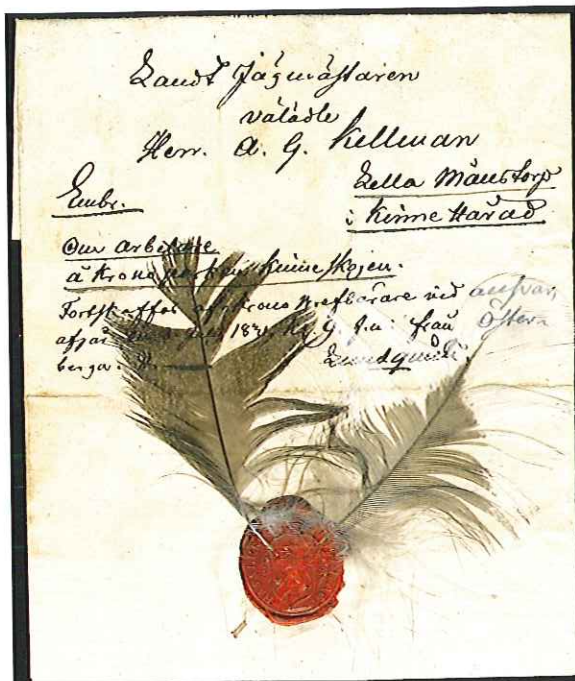 Landt Jägmästaren
välädle
Herr. A. G. Kellman
Lella Mänstorp
i Kinne Härad
Embr.
Om arbetare
å Krono parken Kinneskogen.
Fortskaffas af Krono brefbärare vid ansvar,
afgår 1831. Kl. 9. f.m. från Öster-
berga.
Lundquist.